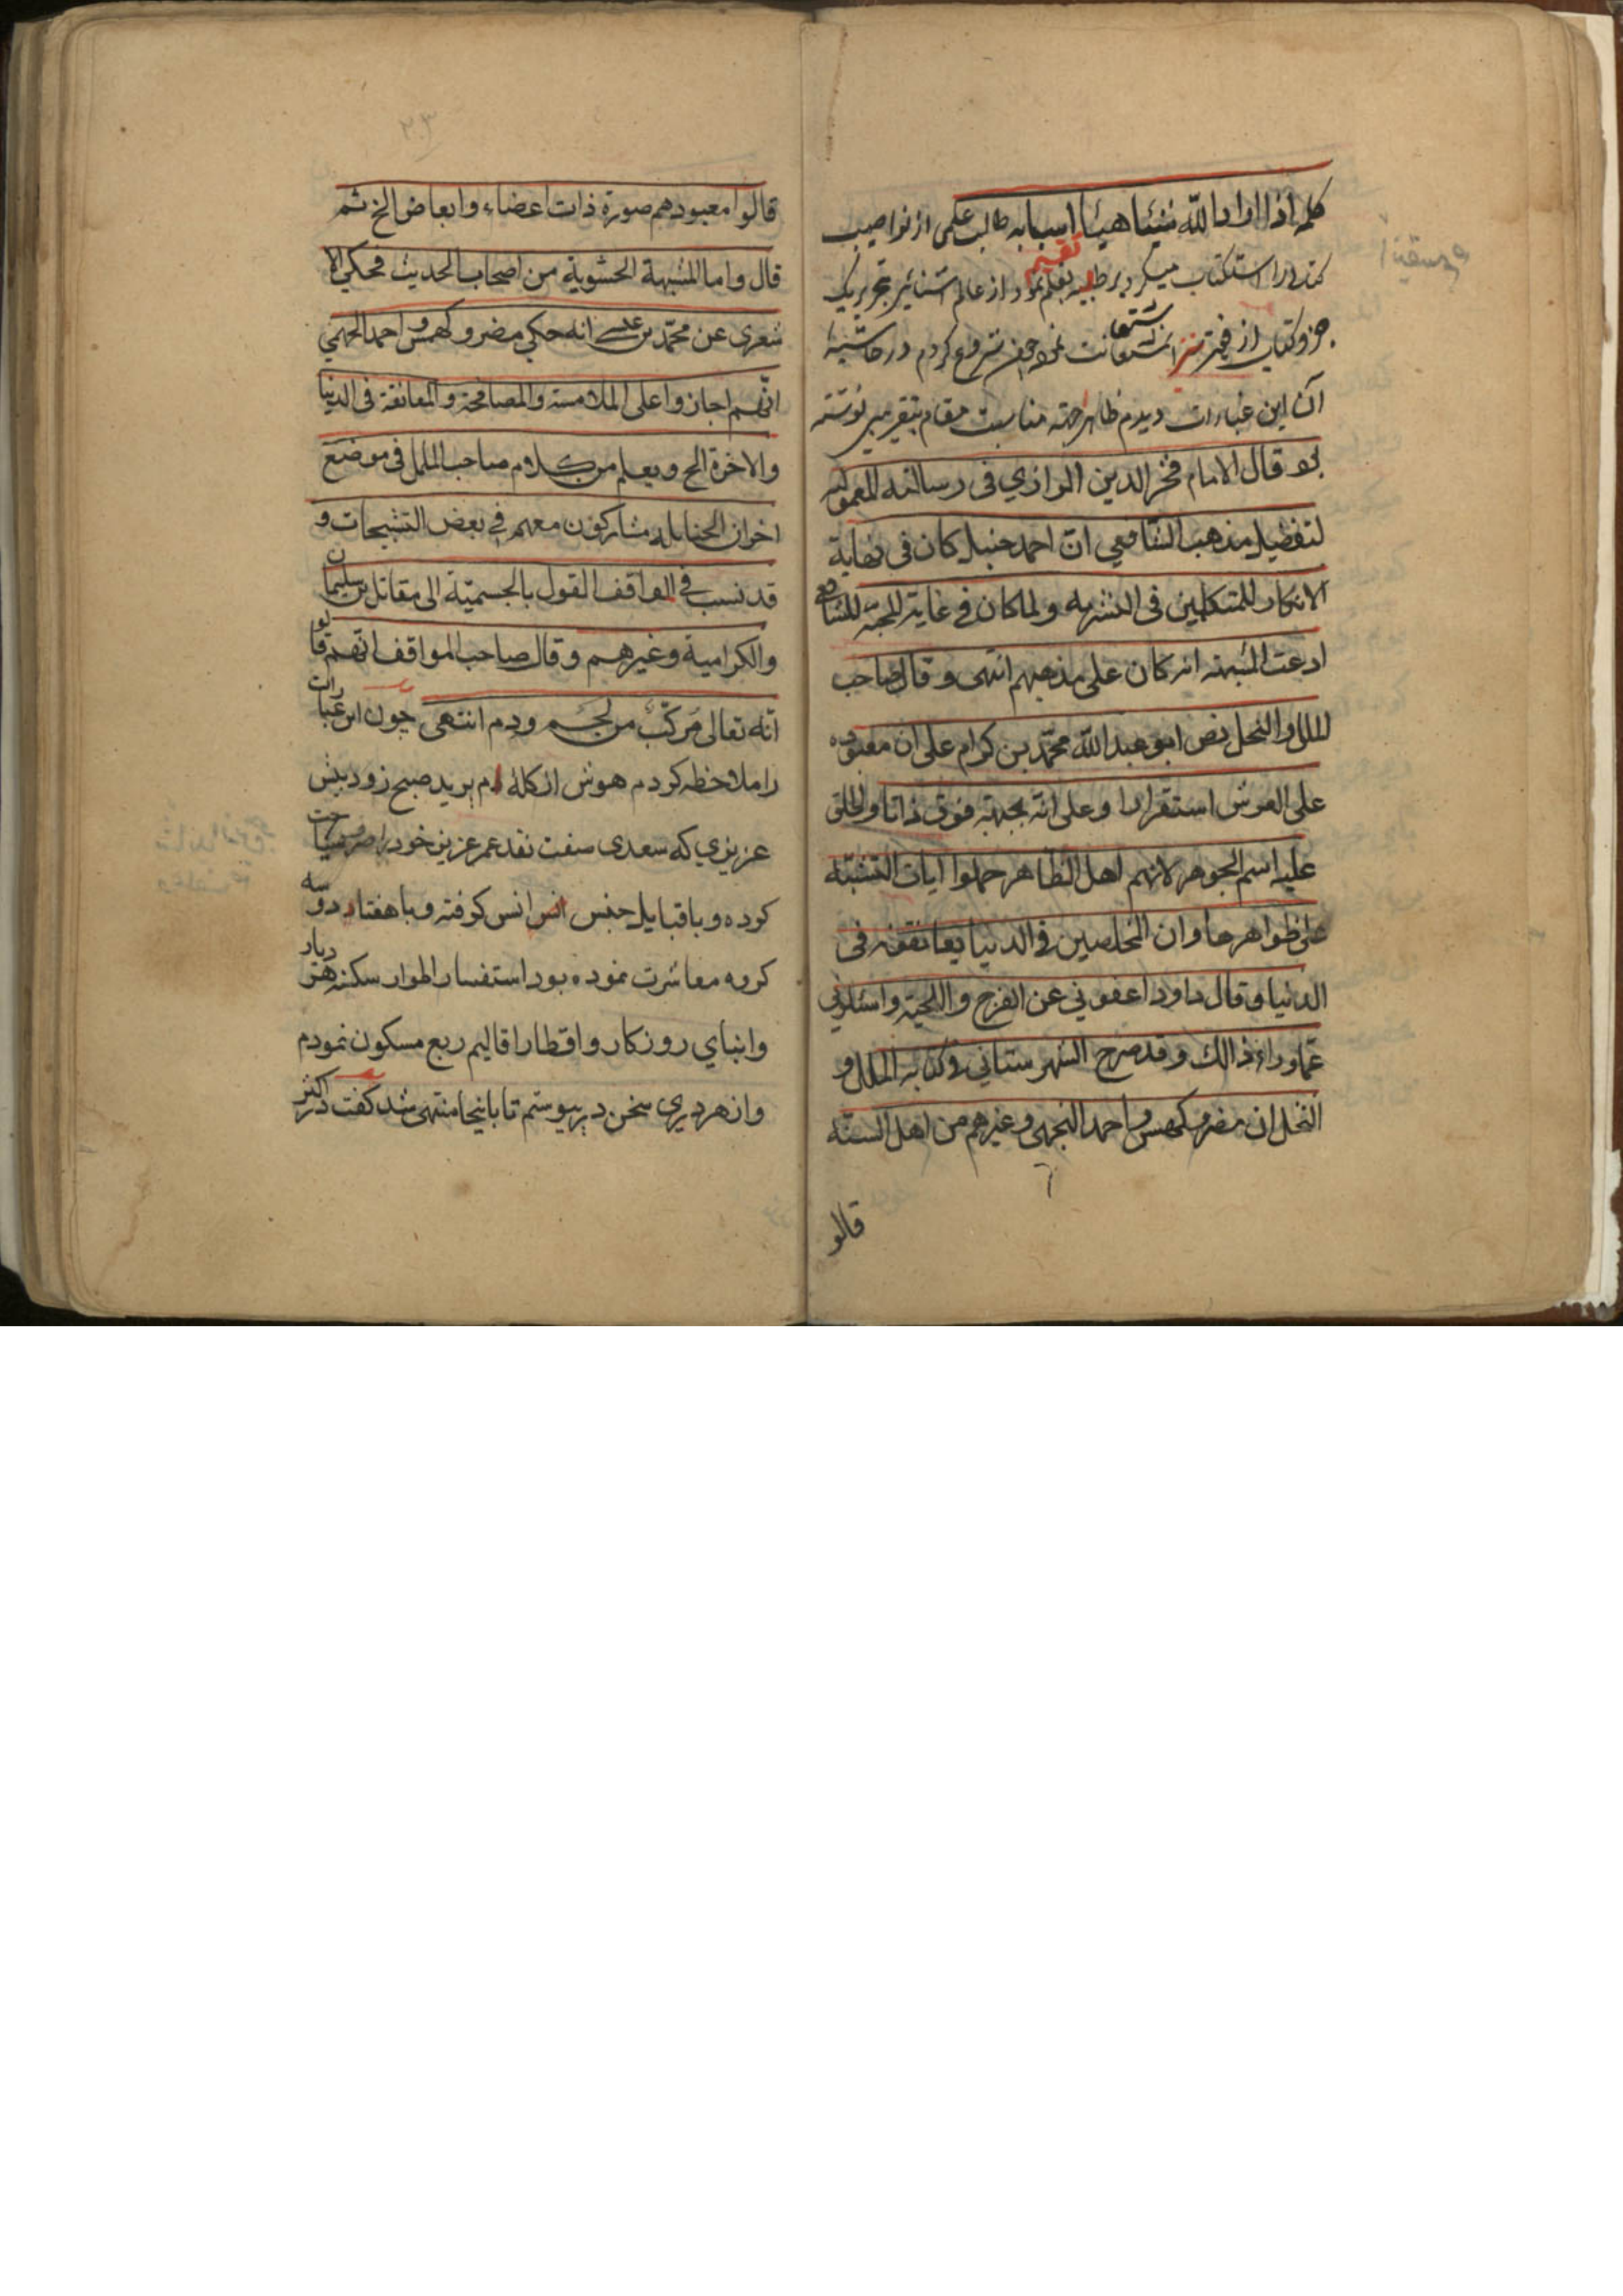 كلمه اذا اراد الله شيئا هيئا اسبابه طالب علمى از نواصيب
كتد را استكتاب ميكرد بر طلبه تقسيم نمود از عالم اشنائى تحرير يك
جزو كتاب از فقير نيز استعانت نمود چون شروع كردم در حاشيهٔ
آن اين عبارات ديدم ظاهرا جهته مناسبت مقام بتقريبى نوشته
بود قال الامام فخر الدين الرازي فى رسالته المعموله
لتفضيل مذهب الشافعي ان احمد حنبل كان فى نهاية
الانكار للمتكلمين فى التنزيه ولما كان في غاية المحبة للشافعي
ادعت المشبهه انه كان على مذهبهم انتهى و قال صاحب
الملل والنحل نص ابو عبد الله محمد بن كرام على ان معبوده
على العرش استقرارا وعلى انه بجهة فوق ذاتا واطلق
عليه اسم الجوهر لانهم اهل الظاهر حملوا ايات التشبيه
على ظواهرها وان المخلصين فى الدنيا يعانقونه فى
الدنيا وقال داود اعفوني عن الفرج واللحية واسئلوني
عما وراء ذالك وقد صرح الشهرستاني في كتابه الملل و
النحل ان مضر و كهمس و احمد الجهمى وغيرهم من اهل السنه
قالو
٢٠٣
قالوا معبودهم صورة ذات اعضاء وابعاض الخ ثم
قال واما المشبهة الحشوية من اصحاب الحديث فحكى الا
شعرى عن محمد بن عيسى انه حكي مضر و كهمس و احمد الجهمي
انهم اجازوا على الملامسة والمصافحة والمعانقة فى الدنيا
والاخرة الخ ويعلم من كلام صاحب الملل فى موضع
اخر ان الحنابله مشاركون معهم في بعض التشبيحات و
قد نسب في المواقف القول بالجسمية الى مقاتل بن سليمان
والكرامية وغيرهم وقال صاحب المواقف انهم قالو
انه تعالى مركب من لحم ودم انتهى چون اين عبارات
را ملاحظه كردم هوش از كله ام پريد صبح زود پيش
عزيزي كه سعدى صفت نقد عمر عزيز خود را صرف سياحت
كرده و با قبايل جنس انس انس گرفته و با هفتاد و سه
گروه معاشرت نموده بود استفسار اطوار سكنه هر ديار
وابناي روزكار واقطار اقاليم ربع مسكون نمودم
واز هر دري سخن در پيوستم تا باينجا منتهى شد گفت در اكثر